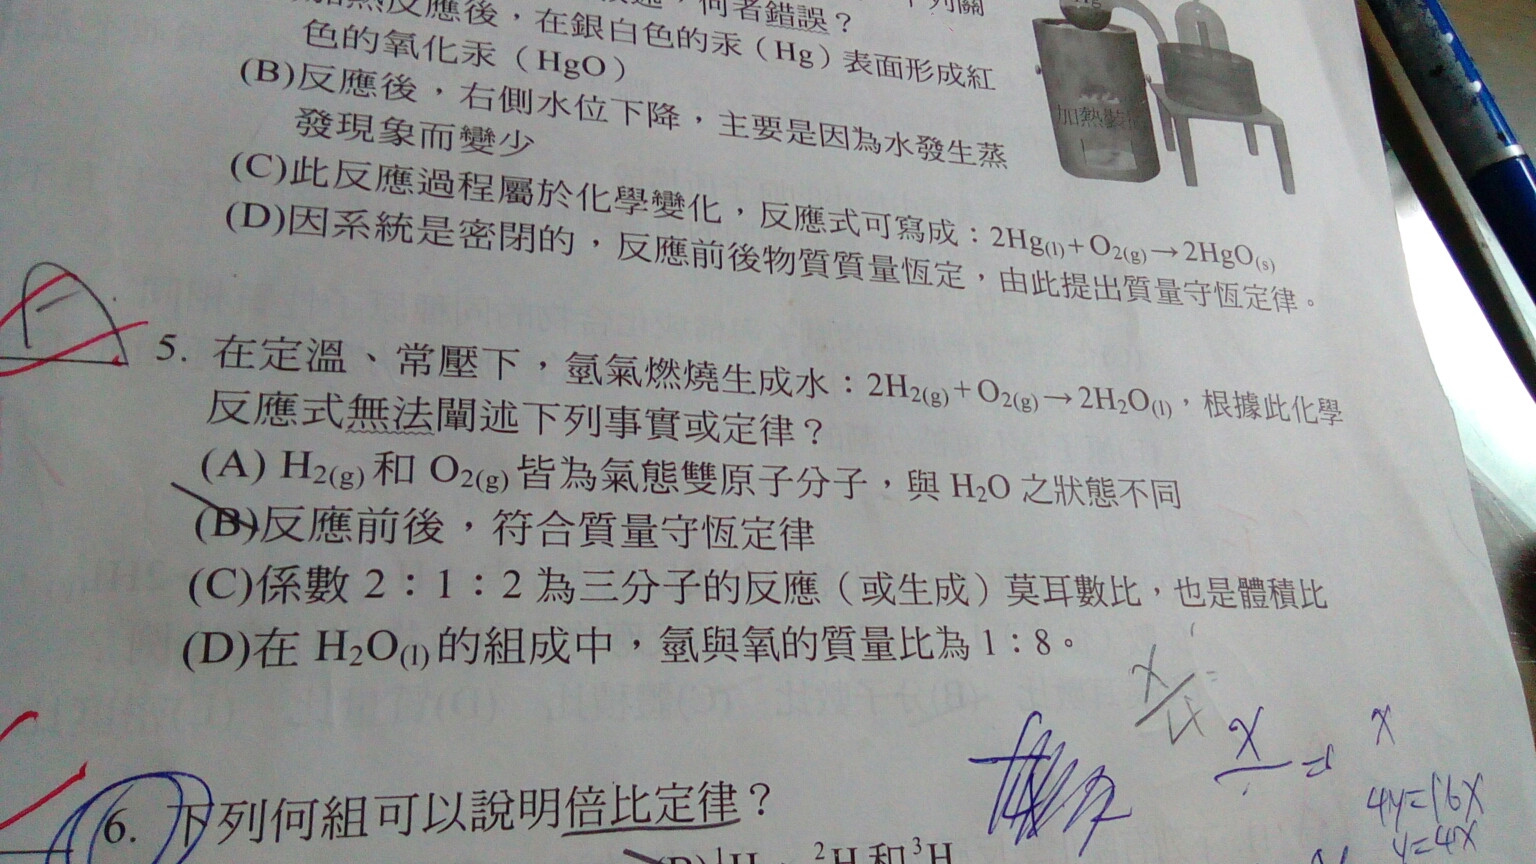 下列關
何者錯誤?
反應後,在銀白色的汞(Hg)表面形成紅
色的氧化汞(HgO)
(B)反應後,右側水位下降,主要是因為水發生蒸
發現象而變少
(C)此反應過程屬於化學變化,反應式可寫成:2Hg(l)+O2(g)→2HgO(s)
(D)因系統是密閉的,反應前後物質質量恆定,由此提出質量守恆定律。
Hg
加熱裝
5. 在定溫、常壓下,氫氣燃燒生成水:2H2(g)+O2(g)→2H2O(l),根據此化學
反應式無法闡述下列事實或定律?
(A) H2(g)和 O2(g)皆為氣態雙原子分子,與 H2O 之狀態不同
(B)反應前後,符合質量守恆定律
(C)係數 2:1:2 為三分子的反應(或生成)莫耳數比,也是體積比
(D)在 H2O(l)的組成中,氫與氧的質量比為 1:8。
x
x
x
4y=16x
y=4x
6. 下列何組可以說明倍比定律?
2H和3H